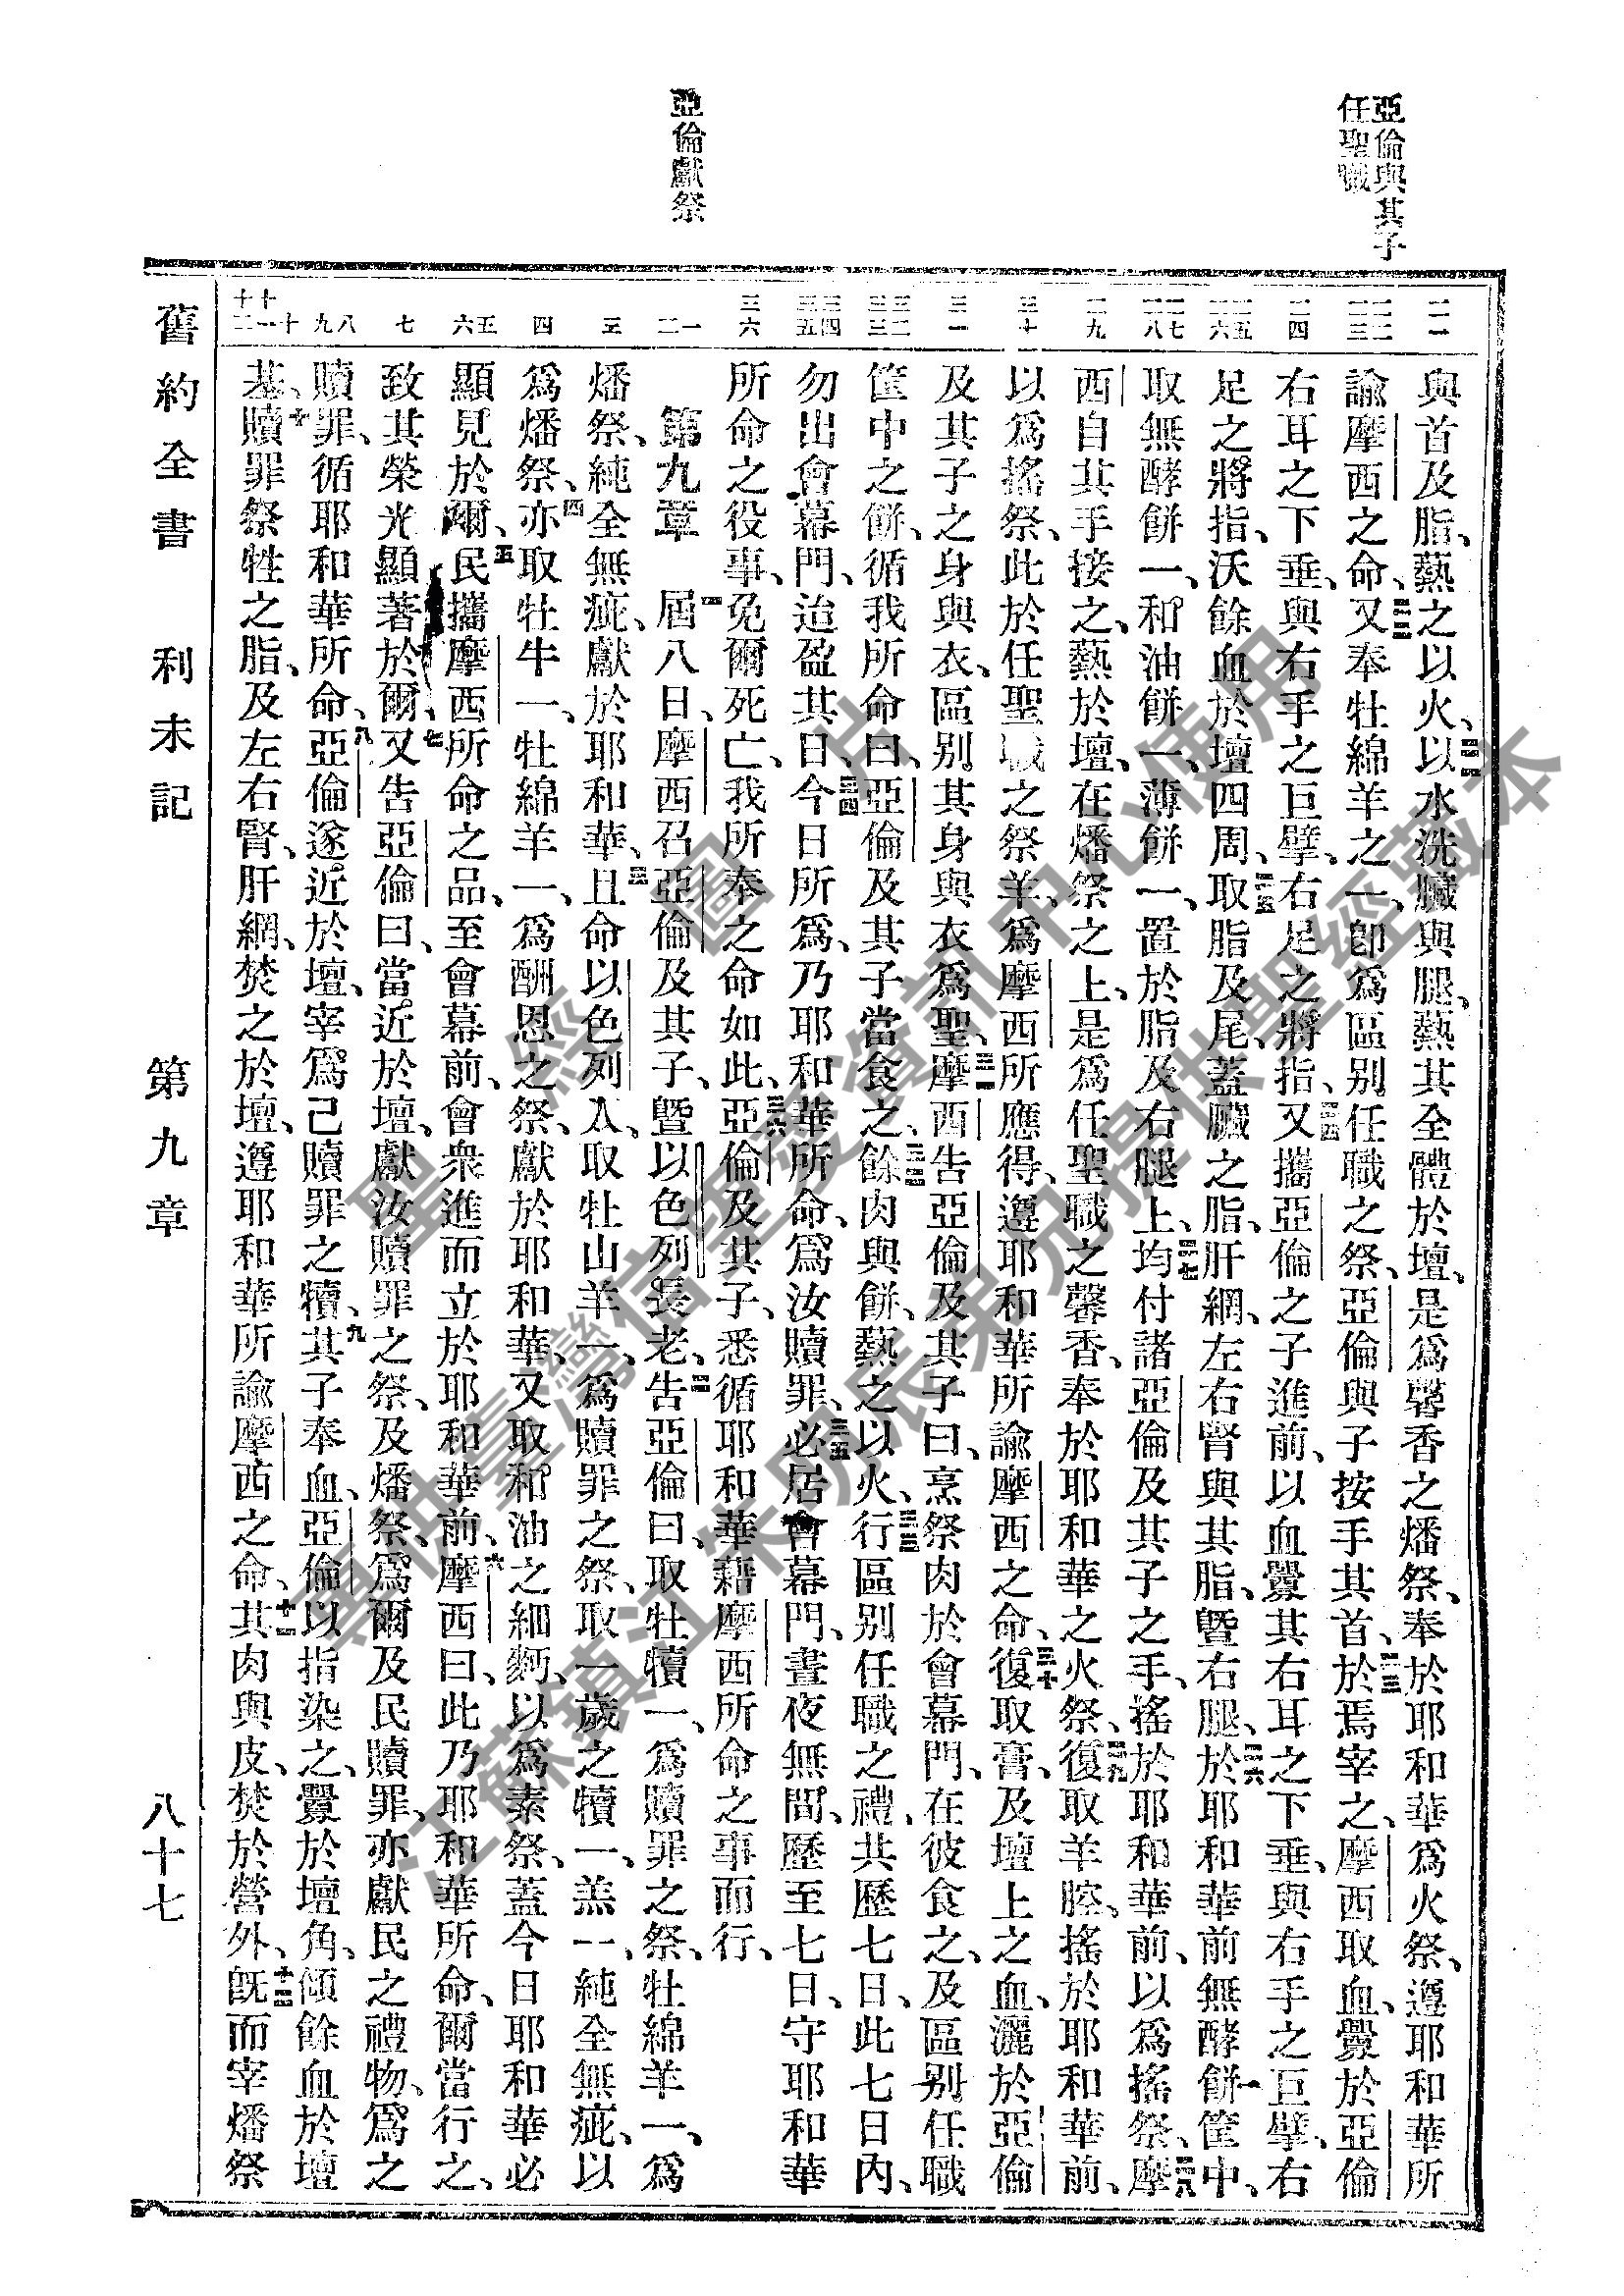 亞倫與其子
任聖職
亞倫獻祭
二一
二二 二三
二四
二五 二六
二七 二八
二九
三十
三一
三二 三三
三四 三五
三六
一 二
三
四
五 六
七
八 九
十 十一 十二
與首及脂、爇之以火、二一以水洗臟與腿、爇其全體於壇、是爲馨香之燔祭、奉於耶和華爲火祭、遵耶和華所
諭摩西之命、二二又奉牡綿羊之一、卽爲區别任職之祭、亞倫與子按手其首、二三於焉宰之、摩西取血、釁於亞倫
右耳之下垂、與右手之巨擘、右足之將指、二四又攜亞倫之子進前、以血釁其右耳之下垂、與右手之巨擘、右
足之將指、沃餘血於壇四周、二五取脂及尾、蓋臟之脂、肝網、左右腎與其脂、曁右腿、二六於耶和華前無酵餅筐中、
取無酵餅一、和油餅一、薄餅一、置於脂及右腿上、二七均付諸亞倫及其子之手、搖於耶和華前、以爲搖祭、二八摩
西自其手接之、爇於壇、在燔祭之上、是爲任聖職之馨香、奉於耶和華之火祭、二九復取羊腔、搖於耶和華前、
以爲搖祭、此於任聖職之祭羊、爲摩西所應得、遵耶和華所諭摩西之命、三十復取膏、及壇上之血、灑於亞倫
及其子之身與衣、區别其身與衣爲聖、三一摩西告亞倫及其子曰、烹祭肉於會幕門、在彼食之、及區别任職
筐中之餅、循我所命曰、亞倫及其子當食之、三二餘肉與餅、爇之以火、三三行區别任職之禮、共歷七日、此七日內、
勿出會幕門、迨盈其日、三四今日所爲、乃耶和華所命、爲汝贖罪、三五必居會幕門、晝夜無間、歷至七日、守耶和華
所命之役事、免爾死亡、我所奉之命如此、三六亞倫及其子、悉循耶和華藉摩西所命之事而行、
第九章　一屆八日、摩西召亞倫及其子、曁以色列長老、二告亞倫曰、取牡犢一、爲贖罪之祭、牡綿羊一、爲
燔祭、純全無疵、獻於耶和華、三且命以色列人、取牡山羊一、爲贖罪之祭、取一歲之犢一、羔一、純全無疵、以
爲燔祭、四亦取牡牛一、牡綿羊一、爲酬恩之祭、獻於耶和華、又取和油之細麪、以爲素祭、蓋今日耶和華必
顯見於爾、五民攜摩西所命之品、至會幕前、會衆進而立於耶和華前、六摩西曰、此乃耶和華所命、爾當行之、
致其榮光顯著於爾、七又告亞倫曰、當近於壇、獻汝贖罪之祭、及燔祭、爲爾及民贖罪、亦獻民之禮物、爲之
贖罪、循耶和華所命、八亞倫遂近於壇、宰爲己贖罪之犢、九其子奉血、亞倫以指染之、釁於壇角、傾餘血於壇
基、十贖罪祭牲之脂、及左右腎、肝網、焚之於壇、遵耶和華所諭摩西之命、十一其肉與皮、焚於營外、十二旣而宰燔祭
舊約全書　利未記　第九章　八十七
聖經圖片
專供臺灣信望愛資訊中心使用
江蘇鎮江朱明辰弟兄提供聖經藏本